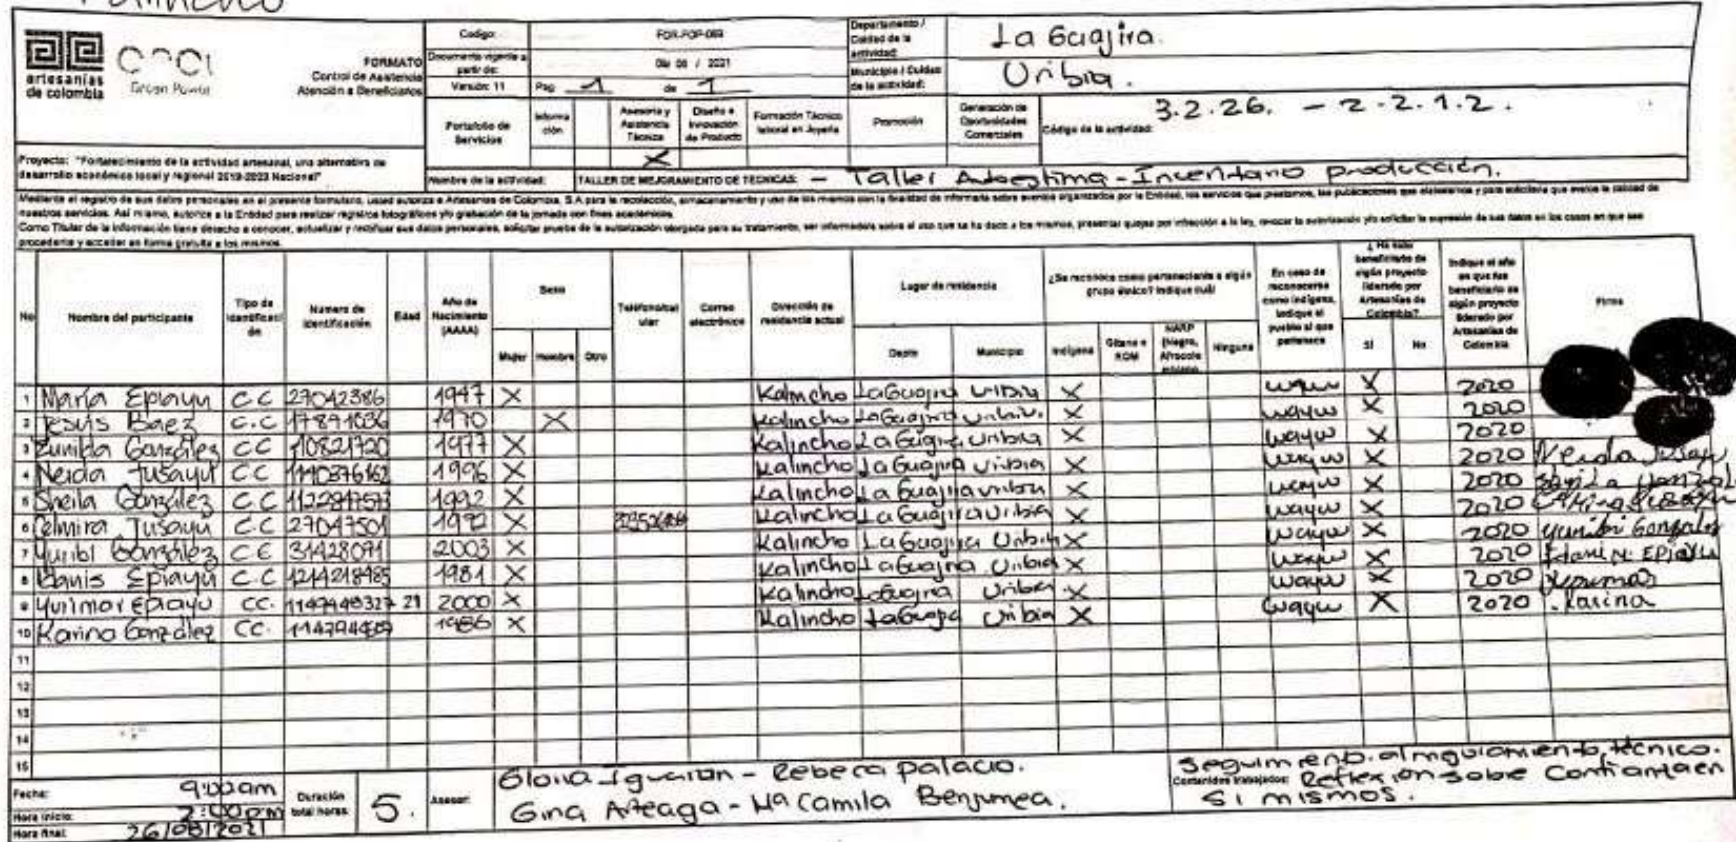 Kalincho
artesanías
de colombia
FORMATO
Control de Asistencia
Atención a Beneficiarios
Codigo: FOR-FOP-069
Documento vigente a partir de: 2021
Versión: 11 Pag 1 de 1
Portafolio de Servicios
Informa ción
Asesoría y Asistencia Técnica X
Diseño e Innovación de Producto
Formación Técnico laboral en Joyería
Promoción
Generación de Oportunidades Comerciales
Departamento / Ciudad de la actividad: La Guajira.
Municipio / Ciudad de la actividad: Uribia.
Código de la actividad: 3.2.26. - 2.2.1.2.
Proyecto: "Fortalecimiento de la actividad artesanal, una alternativa de
desarrollo económico local y regional 2019-2023 Nacional"
Nombre de la actividad: TALLER DE MEJORAMIENTO DE TECNICAS: - Taller Autoestima - Inventario producción.
Mediante el registro de sus datos personales en el presente formulario, usted autoriza a Artesanías de Colombia, S.A para la recolección, almacenamiento y uso de los mismos con la finalidad de informarle sobre eventos organizados por la Entidad, los servicios que prestamos, las publicaciones que elaboramos y para solicitarle que evalúe la calidad de
nuestros servicios. Así mismo, autorizo a la Entidad para realizar registros fotográficos y/o grabación de la jornada con fines académicos.
Como Titular de la información tiene derecho a conocer, actualizar y rectificar sus datos personales, solicitar prueba de la autorización otorgada para su tratamiento, ser informado/a sobre el uso que se ha dado a los mismos, presentar quejas por infracción a la ley, revocar la autorización y/o solicitar la supresión de sus datos en los casos en que sea
procedente y acceder en forma gratuita a los mismos.
No Nombre del participante Tipo de identificaci ón Numero de identificación Edad Año de Nacimiento (AAAA) Sexo Mujer Hombre Otro Teléfono/cel ular Correo electrónico Dirección de residencia actual Lugar de residencia Depto Municipio ¿Se reconoce como perteneciente a algún grupo étnico? Indique cuál Indígena Gitano o ROM NARP (Negro, Ninguna En caso de reconocerse como indígena, indique el pueblo al que pertenece ¿Ha sido beneficiario de algún proyecto liderado por Artesanías de Colombia? SI No Indique el año en que fue beneficiario de algún proyecto liderado por Artesanías de Colombia Firma
1 María Epiayu CC 27042386 1947 X Kalincho La Guajira Uribia X wayuu X 2020
2 Jesús Baez C.C 17871036 1970 X Kalincho La Guajira Uribia. X wayuu X 2020
3 Zunilda González CC 1977 X Kalincho La Guajira Uribia X wayuu X 2020
4 Neida Jusayú CC 1996 X Kalincho La Guajira Uribia X wayuu X 2020 Neida Jusayu
5 Sheila González C.C 1992 X Kalincho La Guajira Uribia X wayuu X 2020
6 Celmira Jusayú C.C 27047501 X Kalincho La Guajira Uribia X wayuu X 2020
7 Yuribi González C E 31428071 2003 X Kalincho La Guajira Uribia X wayuu X 2020 Yuribi Gonzalez
8 Epiayú C.C 1214218985 1981 X Kalincho La Guajira Uribia X wayuu X 2020 Epiayu
9 Yurimar Epiayu CC. 21 2000 X Kalincho La Guajira Uribia X wayuu X 2020
10 Karina González CC. 1986 X Kalincho La Guajira Uribia X wayuu X 2020 Karina
11
12
13
14
15
Fecha: 9:00am
Hora inicio: 2:00pm
Hora final: 26/08/2021
Duración total horas: 5.
Asesor: Gloria Iguarán - Rebeca Palacio.
Gina Arteaga - Mª Camila Benjumea.
Contenidos trabajados: Seguimiento al mejoramiento técnico.
Reflexión sobre Confianza en
si mismos.